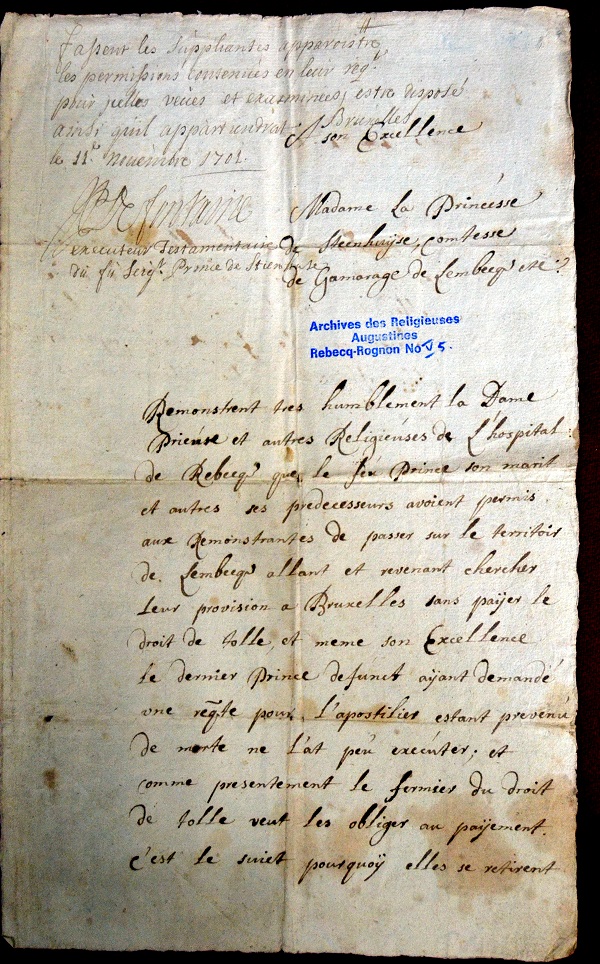 fassent les suppliantes apparoistre
les permissions contenues en leur reqte
pour icelles veües et examinées, estre disposé
ainsi qu'il appartiendrat Bruxelles
le 11e novembre 1701.
fontaine
executeur Testamentaire
du fu Serge Prince de Steenhuse
A son Excellence
Madame La Princesse
de Steenhuijse, Comtesse
de Gamarage de Lembecq etc:
Archives des Religieuses
Augustines
Rebecq-Rognon No V 5.
Remonstrent tres humblement la Dame
Prieuse et autres Religieuses de L'hospital
de Rebecq que le feu Prince son marit
et autres ses predecesseurs avoient permis
aux Remonstrantes de passer sur le territoir
de Lembecq allant et revenant chercher
leur provision a Bruxelles sans paÿer le
droit de tolle, et meme son Excellence
le dernier Prince defunct aÿant demandé
vne reqte pour L'apostilier estant prevenü
de morte ne l'at peü executer; et
comme presentement le fermier du droit
de tolle veut les obliger au paÿement.
C'est le suiet pourquoÿ elles se retirent